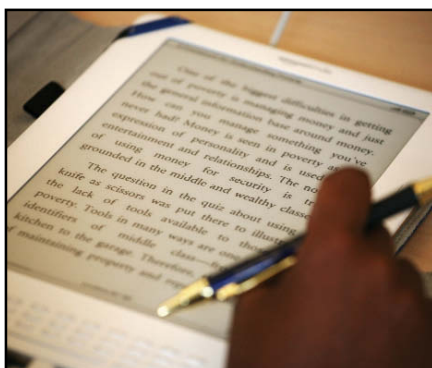 One of the biggest difficulties in getting
out of poverty is managing money and just
the general information base around money.
How can you manage something you've
never had! Money is seen in poverty as
expression of personality and is used
entertainment and relationships. The
of using money for security is
grounded in the middle and wealthy classe
The question in the quiz about using
knife as scissors was put there to illust
the lack of tools available to
poverty. Tools in many ways are one
identifiers of middle class—
kitchen to the garage. Therefore,
of maintaining property and